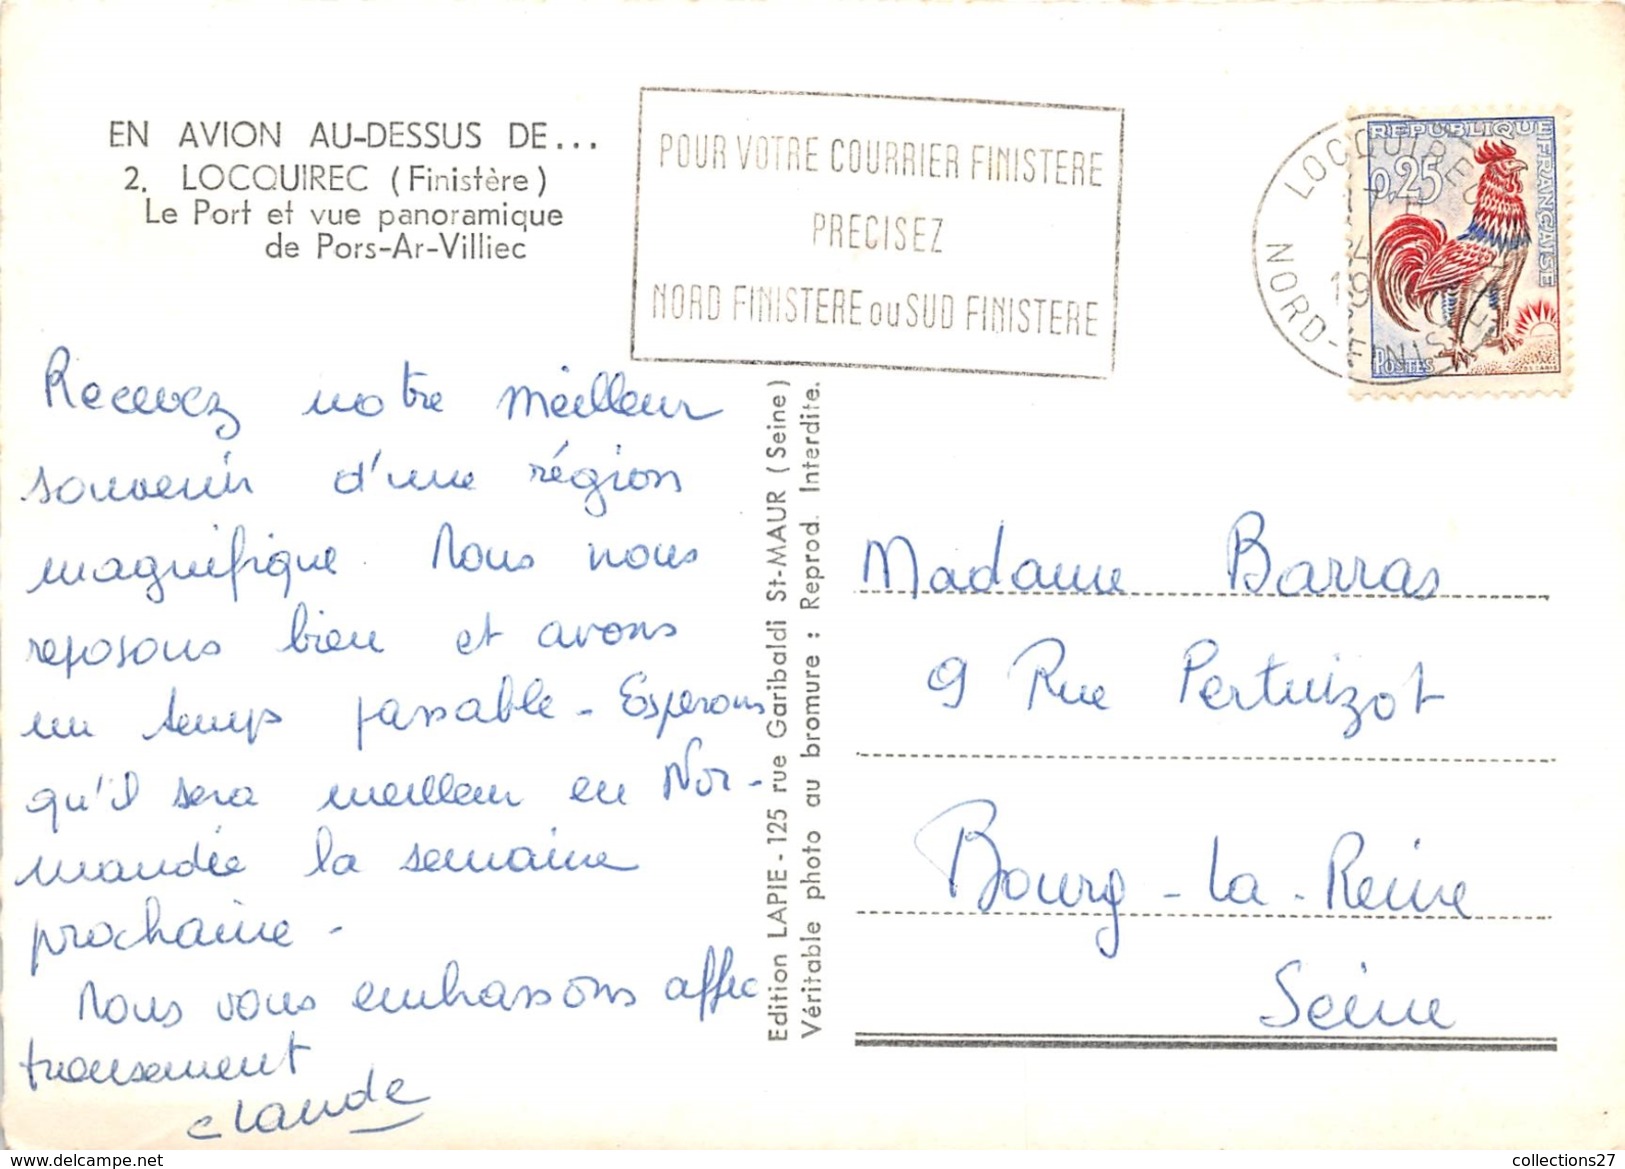 EN AVION AU-DESSUS DE...
2. LOCQUIREC (Finistère)
Le Port et vue panoramique
de Pors-Ar-Villiec
POUR VOTRE COURRIER FINISTERE
PRECISEZ
NORD FINISTERE ou SUD FINISTERE
LOCQUIREC
NORD-FINIST
19
REPUBLIQUE FRANÇAISE
0,25
POSTES
Recevez notre meilleur
souvenir d'une région
magnifique. Nous nous
reposons bien et avons
un temps passable - Espérons
qu'il sera meilleur en Nor-
mandie la semaine
prochaine -
Nous vous embrassons affec
tueusement
Claude
Edition LAPIE - 125 rue Garibaldi St-MAUR (Seine)
Véritable photo au bromure : Reprod. Interdite.
Madame Barras
9 Rue Pertuizot
Bourg-la-Reine
Seine
collections27